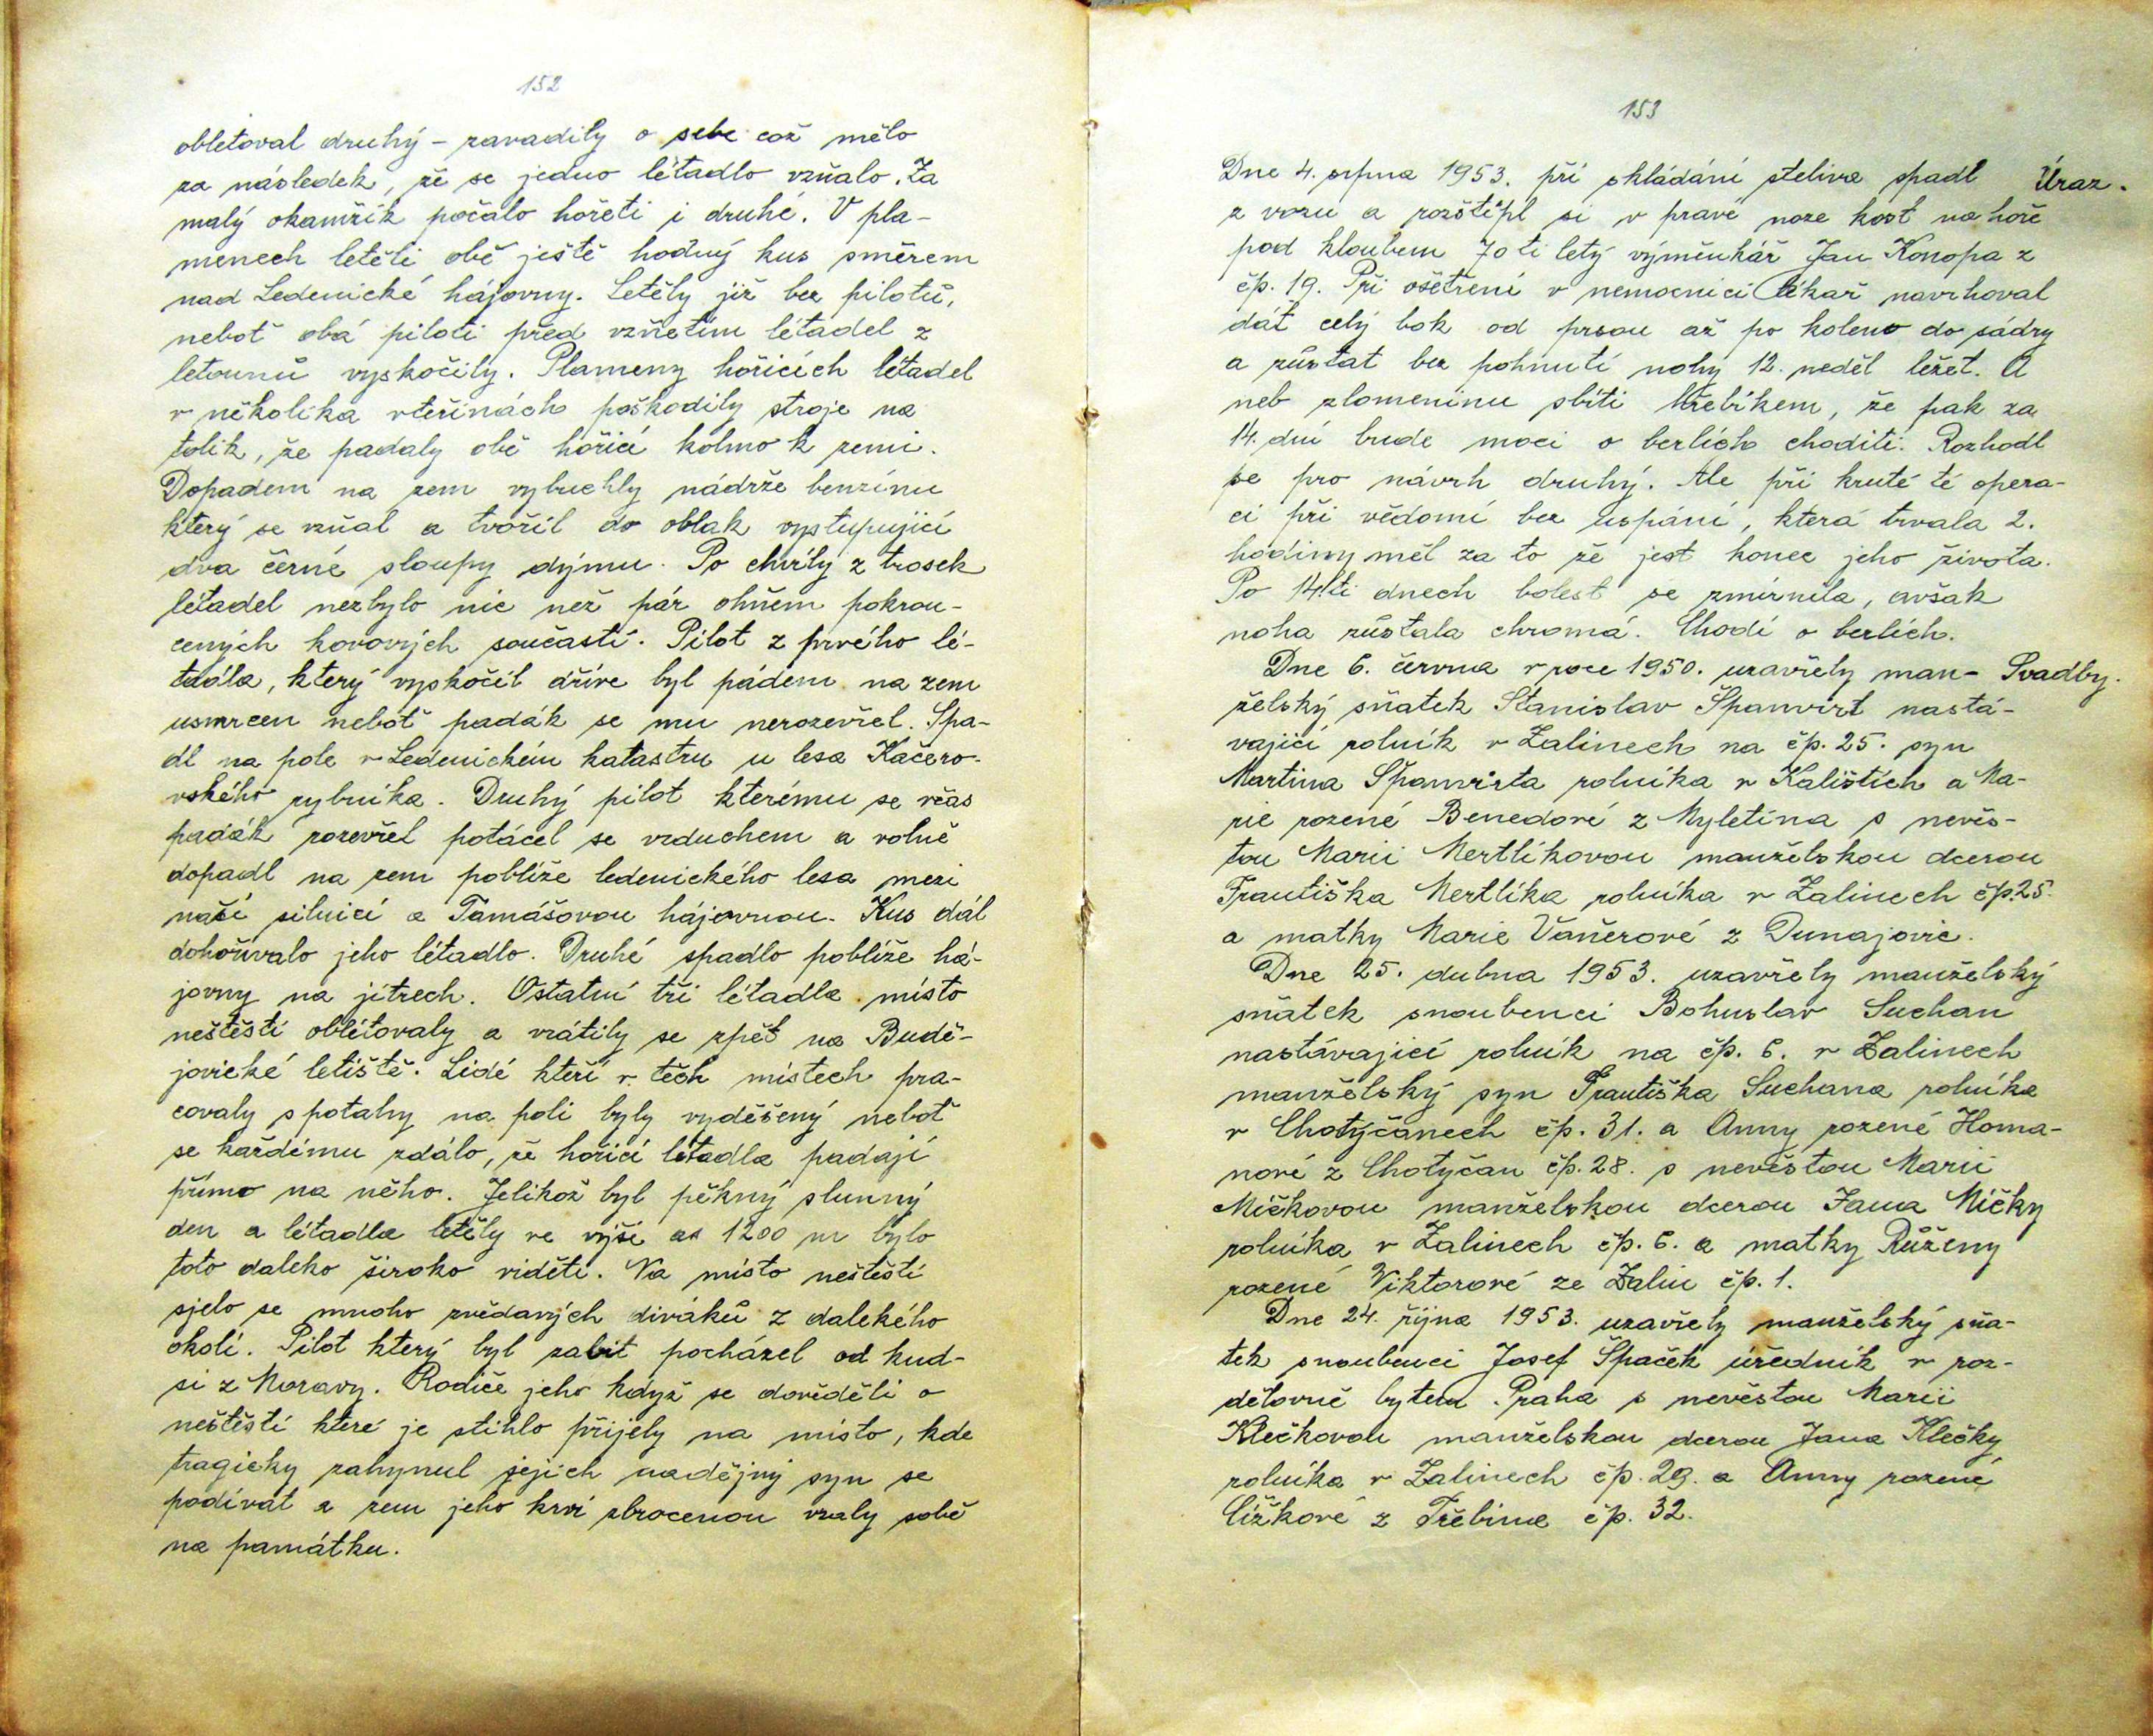 152
obletoval druhý – zavadily o sebe což mělo
za následek, že se jedno létadlo vzňalo. Za
malý okamžik počalo hořeti i druhé. V pla-
menech letěli obě ještě hodný kus směrem
nad Ledenické hájovny. Letěly již bez pilotů,
neboť oba piloti před vznětím létadel z
letounů vyskočily. Plameny hořících létadel
v několika vteřinách poškodily stroje na
tolik, že padaly obě hořící kolmo k zemi.
Dopadem na zem vybuchly nádrže benzínu
který se vzňal a tvořil do oblak vystupující
dva černé sloupy dýmu. Po chvíly z trosek
létadel nezbylo nic než pár ohněm pokrou-
cených kovových součastí. Pilot z prvého lé-
tadla, který vyskočil dříve byl pádem na zem
usmrcen neboť padák se mu nerozevřel. Spa-
dl na pole v Ledenickém katastru u lesa Kačero-
vského rybníka. Druhý pilot kterému se včas
padák rozevřel potácel se vzduchem a volně
dopadl na zem poblíže ledenického lesa mezi
naší silnicí a Tamášovou hájovnou. Kus dál
dohořívalo jeho létadlo. Druhé spadlo poblíže há-
jovny na jitrech. Ostatní tři létadla místo
neštěstí oblétovaly a vrátily se zpět na Budě-
jovické letiště. Lidé kteří v těch místech pra-
covaly s potahy na poli byly vyděšený neboť
se každému zdálo, že hořící létadla padají
přímo na něho. Jelikož byl pěkný slunný
den a létadla letěly ve výši as 1200 m bylo
toto daleko široko viděti. Na místo neštěstí
sjelo se mnoho zvědavých diváků z dalekého
okolí. Pilot který byl zabit pocházel od kud-
si z Moravy. Rodiče jeho když se dověděli o
neštěstí které je stihlo přijely na místo, kde
tragicky zahynul jejich nadějný syn se
podívat a zem jeho krví zbrocenou vzaly sobě
na památku.
153
Dne 4. srpna 1953. při skládání steliva spadl Úraz.
z vozu a rozštípl si v pravé noze kost nahoře
pod kloubem 70ti letý výměnkář Jan Konopa z
čp. 19. Při ošetření v nemocnici lékař navrhoval
dát celý bok od prsou až po koleno do sádry
a zůstat bez pohnutí nohy 12. neděl ležet. A
neb zlomeninu sbíti hřebíkem, že pak za
14. dní bude moci o berlích choditi. Rozhodl
se pro návrh druhý. Ale při kruté té opera-
ci při vědomí bez uspání, která trvala 2.
hodiny měl za to že jest konec jeho života.
Po 14.ti dnech bolest se zmírnila, avšak
noha zůstala chromá. Chodí o berlích.
Dne 6. června v roce 1950. uzavřely man- Svadby.
želský sňatek Stanislav Španvirt nastá-
vající rolník v Zalinech na čp. 25. syn
Martina Španvirta rolníka v Kalištích a Ma-
rie rozené Benedové z Myletína s nevěs-
tou Marii Mertlíkovou manželskou dcerou
Františka Mertlíka rolníka v Zalinech čp. 25.
a matky Marie Váňerové z Dunajovic.
Dne 25. dubna 1953. uzavřely manželský
sňatek snoubenci Bohuslav Suchan
nastávající rolník na čp. 6. v Zalinech
manželský syn Františka Suchana rolníka
v Chotýčanech čp. 31. a Anny rozené Homa-
nové z Chotyčan čp. 28. s nevěstou Marii
Míčkovou manželskou dcerou Jana Míčky
rolníka v Zalinech čp. 6. a matky Růženy
rozené Viktorové ze Zalin čp. 1.
Dne 24. října 1953. uzavřely manželský sňa-
tek snoubenci Josef Špaček úředník v roz-
dělovně bytem Praha s nevěstou Marii
Klečkovou manželskou dcerou Jana Klečky
rolníka v Zalinech čp. 29. a Anny rozené
Čížkové z Třebina čp. 32.